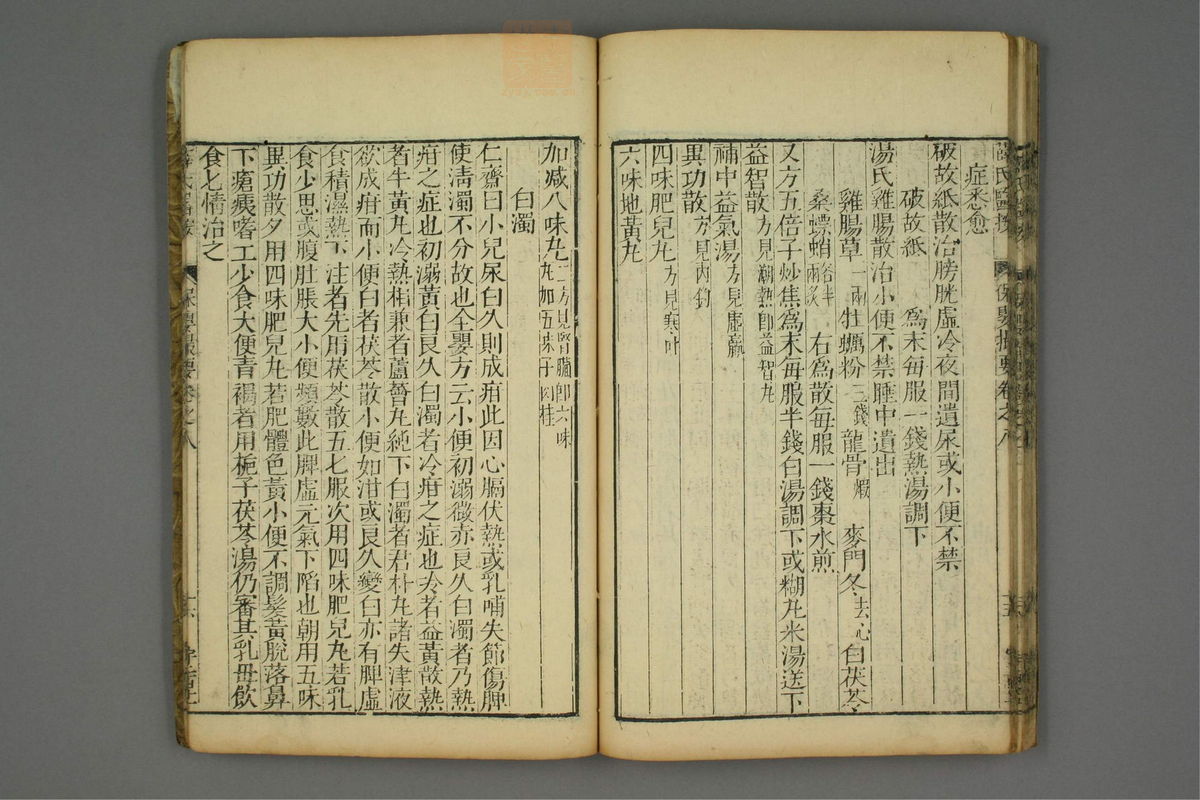 症悉愈
破故紙散治膀胱虛冷夜間遺尿或小便不禁
破故紙 爲末每服一錢熱湯調下
湯氏雞腸散治小便不禁睡中遺出
雞腸草一兩 牡蠣粉三錢 龍骨煅 麥門冬去心 白茯苓
桑螵蛸各半兩炙 右爲散每服一錢棗水煎
又方五倍子炒焦爲末每服半錢白湯調下或糊丸米湯送下
益智散方見潮熱卽益智丸
補中益氣湯方見虛羸
異功散方見內釣
四味肥兒丸方見寒吐
六味地黃丸
加減八味丸二方見腎臟卽六味丸加五味子肉桂
白濁
仁齋曰小兒尿白久則成疳此因心膈伏熱或乳哺失節傷脾
使淸濁不分故也全嬰方云小便初溺微赤良久白濁者乃熱
疳之症也初溺黃白良久白濁者冷疳之症也冷者益黃散熱
者牛黃丸冷熱相兼者蘆薈丸純下白濁者君朴丸諸失津液
欲成疳而小便白者茯苓散小便如泔或良久變白亦有脾虛
食積濕熱下注者先用茯苓散五七服次用四味肥兒丸若乳
食少思或腹肚脹大小便頻數此脾虛元氣下陷也朝用五味
異功散夕用四味肥兒丸若肥體色黃小便不調髮黃脫落鼻
下瘡痍嗜工少食大便靑褐者用梔子茯苓湯仍審其乳母飲
食七情治之
保嬰撮要卷之八